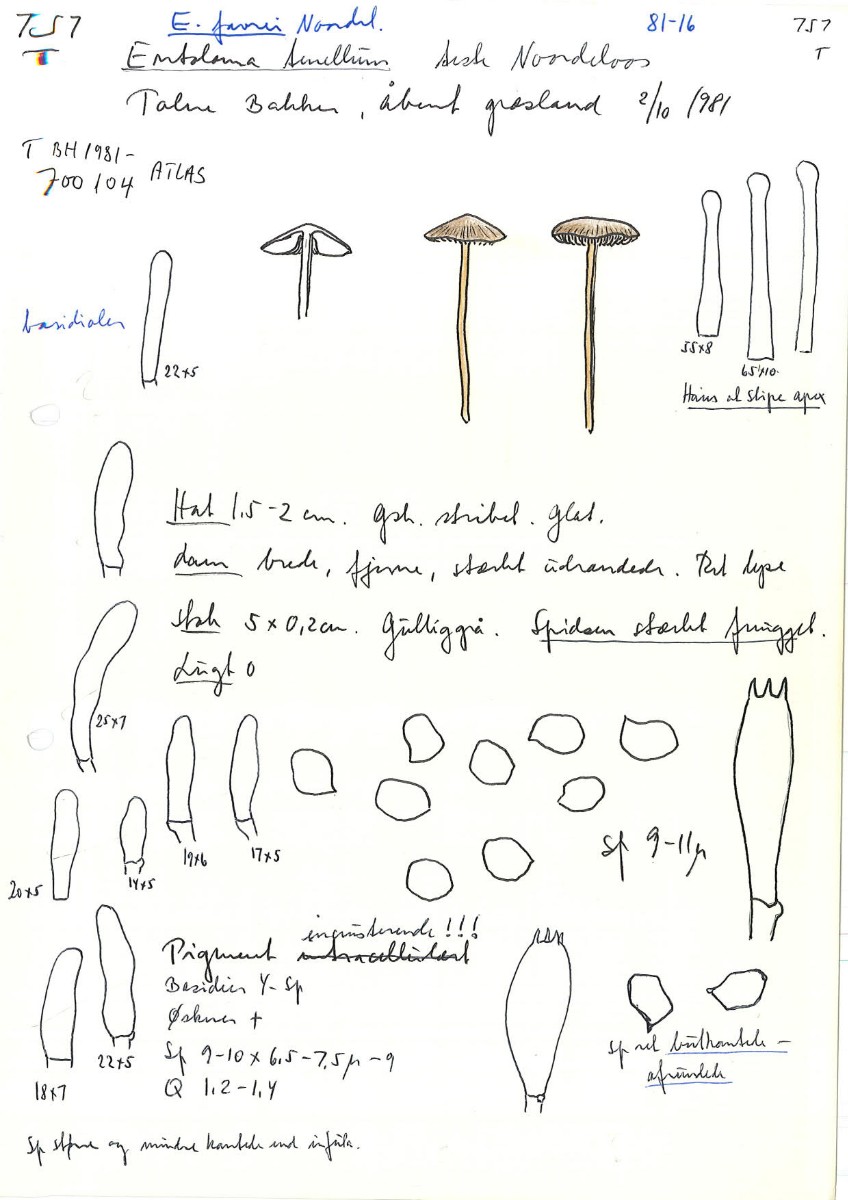 757
T
E. favrei Noordel.
81-16
757
T
Entoloma tenellum det. Noordeloos
Tolne Bakker, åbent græsland 2/10 1981
T BH 1981-
700104 ATLAS
basidioler
22x5
55x8
65x10
Hairs at stipe apex
Hat 1,5-2 cm. gsk. stribet. glat.
Lam brede, fjerne, stærkt udrandede. Ret lyse
Stok 5 x 0,2 cm. Gulliggrå. Spidsen stærkt fnugget.
Lugt 0
25x7
20x5
14x5
19x6
17x5
Sp 9-11µ
inkrusterende !!!
Pigment intracellulært
Basidier 4-sp
Øskner +
Sp 9-10 x 6,5-7,5µ -9
Q 1,2-1,4
18x7
22x5
Sp ret butkantede -
afrundede
Sp større og mindre kantede end infula.